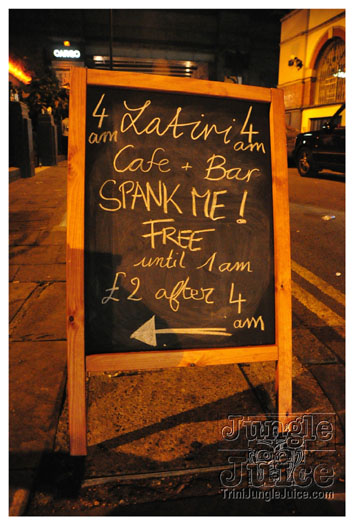 CARGO
4 am Latini 4 am
Cafe + Bar
SPANK ME!
FREE
until 1 am
£2 after 4 am
Jungle
Juice
TriniJungleJuice.com